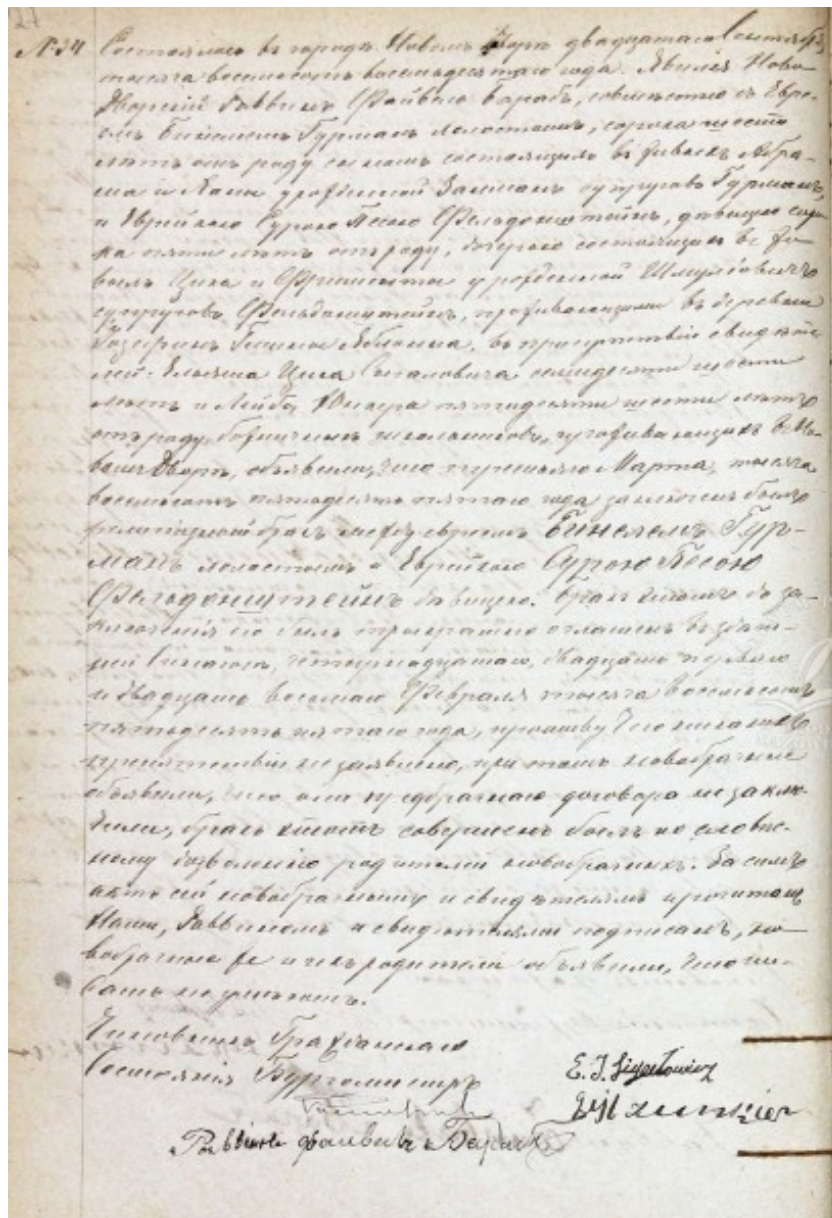 27
№ 34 Состоялось въ городѣ Новомъ Дворѣ двадцатаго Сентября
тысяча восемьсотъ восемьдесятаго года. Явился Ново-
Дворскій Раввинъ Файвель Барабъ, совмѣстно съ Евре-
емъ Гурманъ холостымъ, сорока шести
лѣтъ отъ роду сыномъ состоящихъ въ живыхъ Абра-
ма и урожденной супруговъ Гурманъ,
и Еврейкою Сурою Песою Фельдонштейнъ, дѣвицею соро-
ка пяти лѣтъ отъ роду, дочерью состоящихъ въ жи-
выхъ и урожденной Шмулёвичъ
супруговъ Фельдонштейнъ, проживающими въ деревни
Гмины Яблонна, въ присутствіи свидѣте-
лей: семидесяти шести
лѣтъ и пятидесяти шести лѣтъ
отъ роду, школьниковъ, проживающихъ въ Но-
вомъ Дворѣ, объявили, что перваго Марта, тысяча
восемьсотъ пятьдесятъ пятаго года заключенъ былъ
религіозный бракъ между евреемъ Бинемемъ Гур-
манъ холостымъ и Еврейкою Сурою Песою
Фельдонштейнъ дѣвицею. Бракъ до за-
ключенія его былъ троекратно оглашенъ въ здѣш-
ней Синагогѣ, четырнадцатаго, двадцать перваго
и двадцать восьмаго Февраля тысяча восемьсотъ
пятьдесятъ пятаго года, противу чего никакого
препятствія не заявлено, при томъ новобрачные
объявили, что они предбрачнаго договора не заклю-
чили, бракъ этотъ совершенъ былъ по словес-
ному дозволенію родителей новобрачныхъ. За симъ
актъ сей новобрачнымъ и свидѣтелямъ прочитанъ
Нами, Раввиномъ и свидѣтелями подписанъ, но-
вобрачные же и ихъ родители объявили, что пи-
сать не умѣютъ.
Чиновникъ Гражданскаго
Состоянія Бургомистръ
Раввинъ Файвель Барабъ